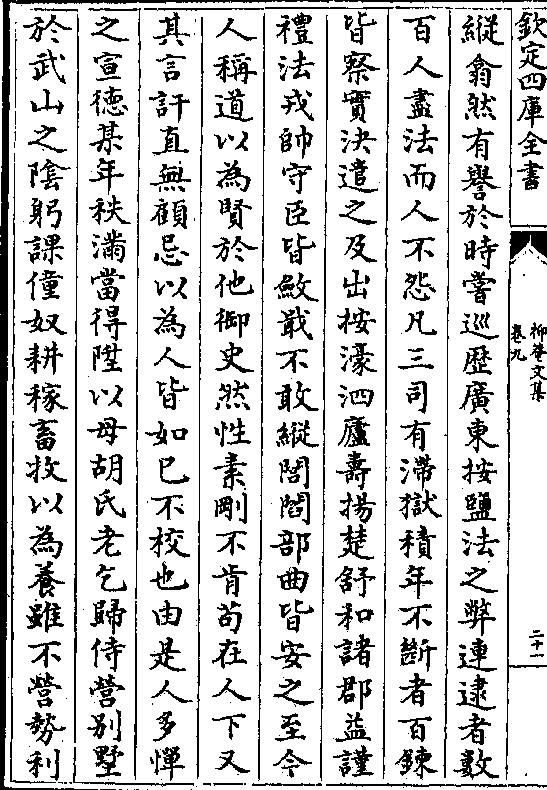 欽定四庫全書
柳菴文集
卷九
二十一
縱翕然有譽於時嘗巡歴廣東按鹽法之弊連逮者數
百人盡法而人不怨凡三司有滯獄積年不斷者百鍊
皆察實決遣之及出按濠泗廬壽揚楚舒和諸郡益謹
禮法戎帥守臣皆斂戢不敢縱閭閻部曲皆安之至今
人稱道以為賢於他御史然性素剛不肯苟在人下又
其言訐直無顧忌以為人皆如已不校也由是人多憚
之宣德某年秩滿當得陞以母胡氏老乞歸侍營别墅
於武山之陰躬課僮奴耕稼畜牧以為養雖不營勢利